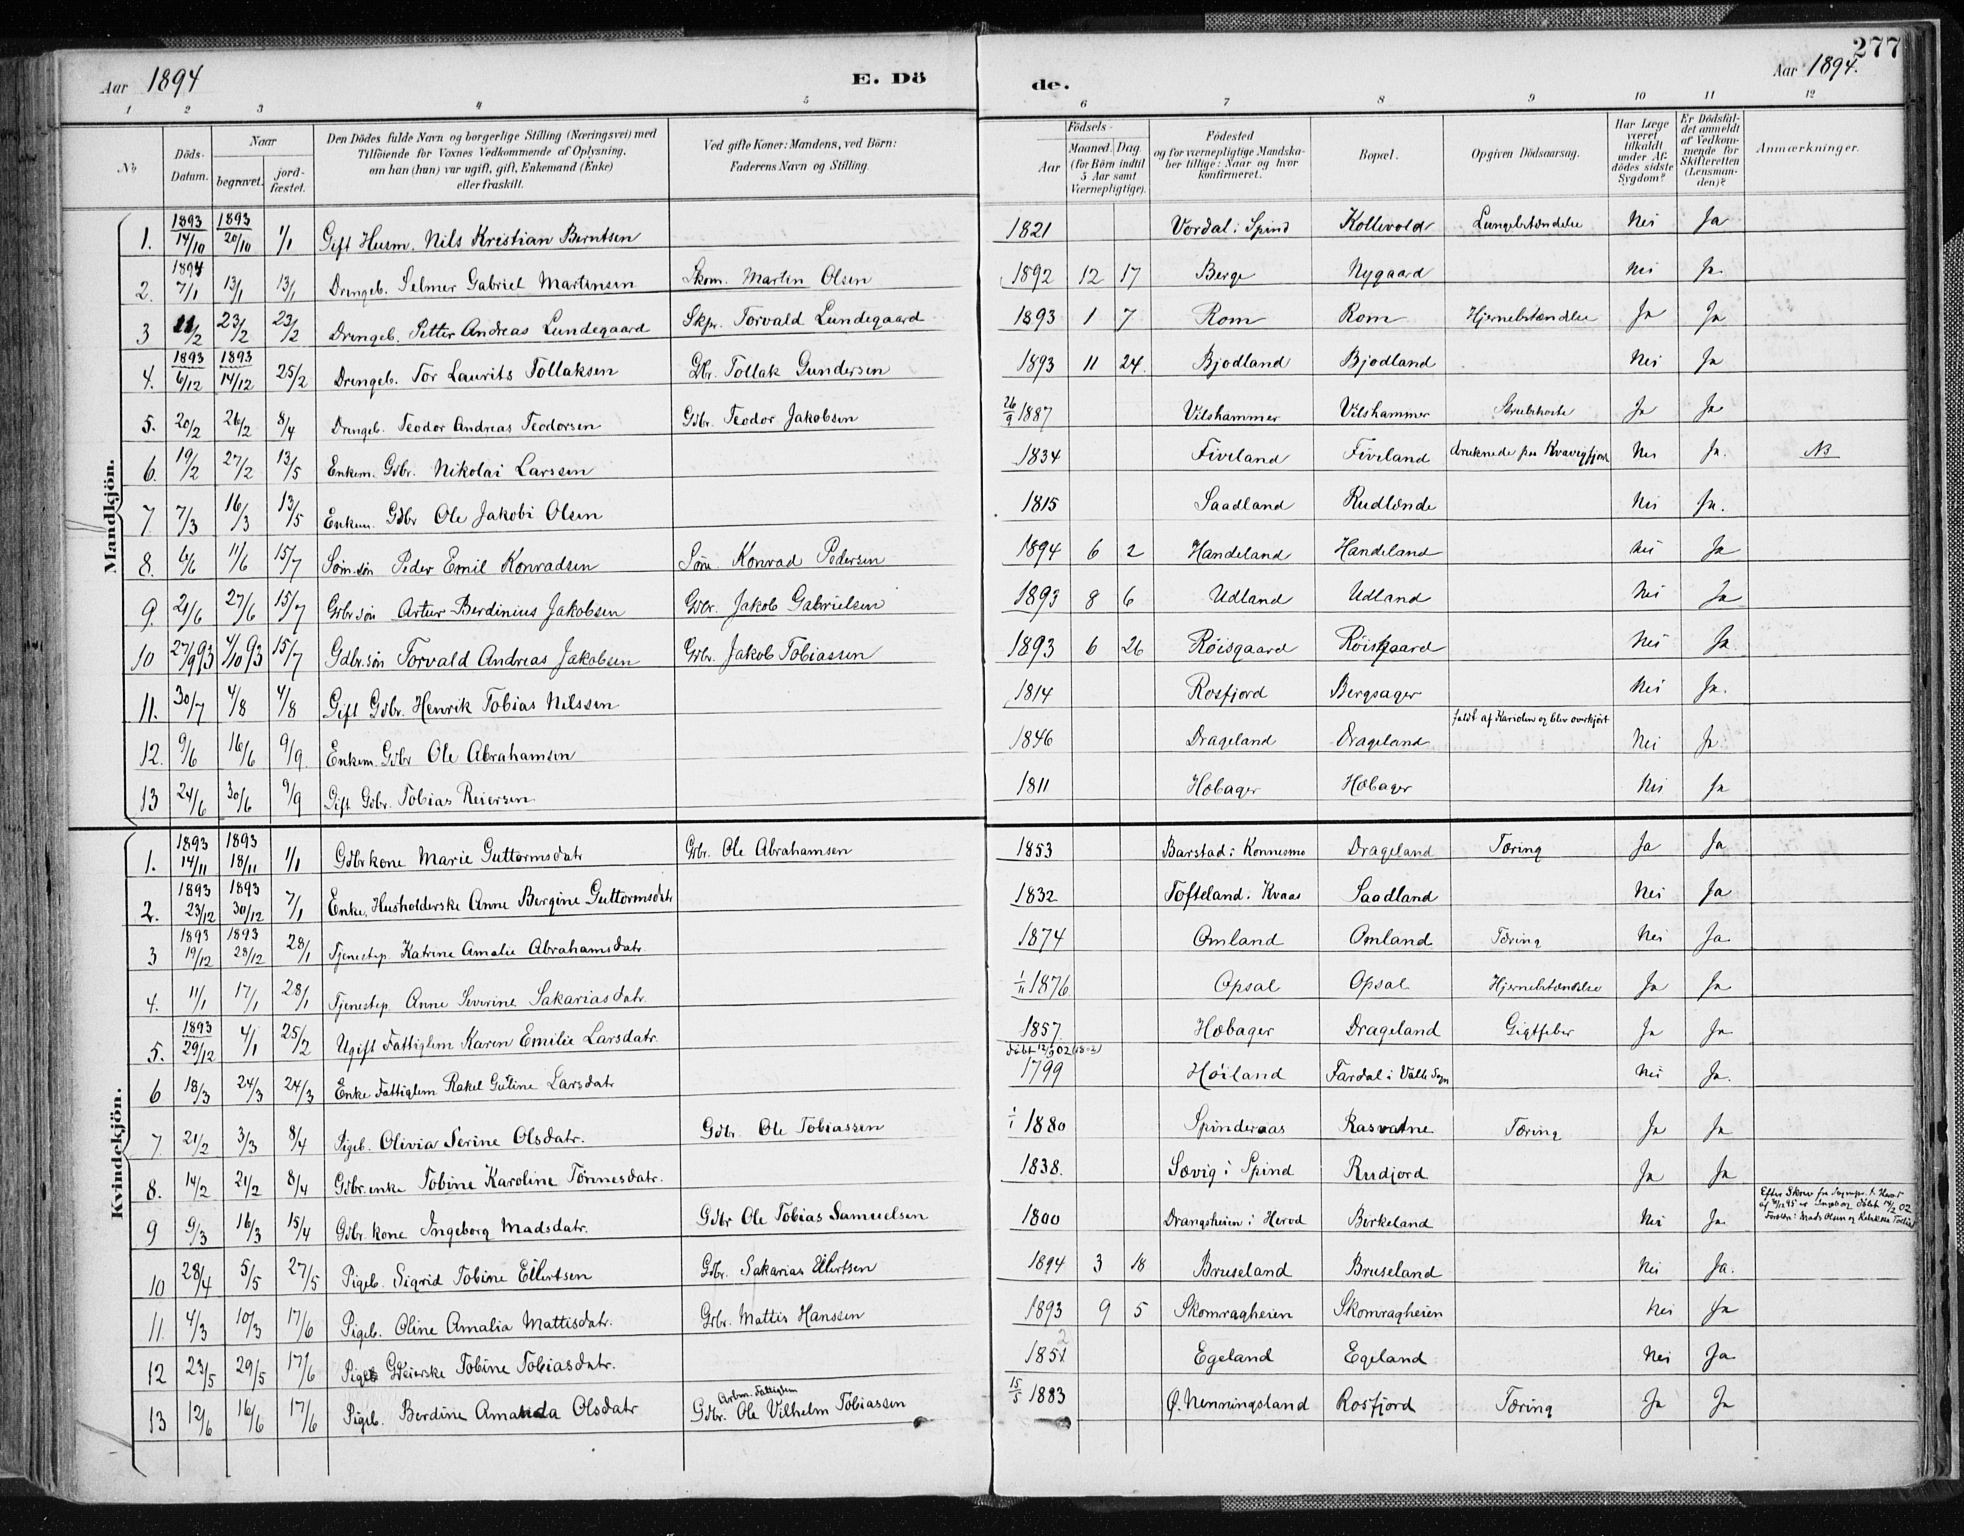 277
Aar 1894 E. Dö de. Aar 1894.
1 2 3 4 5 6 7 8 9 10 11 12
No Döds-Datum. Naar begravet. jordfæstet. Den Dödes fulde Navn og borgerlige Stilling (Næringsvei) med Tilföiende for Voxnes Vedkommende af Oplysning, om han (hun) var ugift, gift, Enkemand (Enke) eller fraskilt. Ved gifte Koner: Mandens, ved Börn: Faderens Navn og Stilling. Födsels- Aar Maaned. Dag (for Börn indtil 5 Aar samt Værnepligtige). Födested og for værnepligtige Mandskaber tillige: Naar og hvor konfirmeret. Bopæl. Opgiven Dödsaarsag. Har Læge været tilkaldt under Afdödes sidste Sygdom? Er Dödsfaldet anmeldt af Vedkommende for Skifteretten (Lensmanden)? Anmærkninger.
Mandkjön.
1. 1893 14/10 1893 20/10 1/1 Gift Husm. Nils Kristian Berntsen 1821 Vordal i Spind Kollevold Lungebetændelse Nei Ja
2. 1894 7/1 13/1 13/1 Drengeb. Selmer Gabriel Martinsen Skom. Martin Olsen 1892 12 17 Berge Nygaard Nei Ja
3 11/2 23/2 23/2 Drengeb. Petter Andreas Lundegaard Skpr. Torvald Lundegaard 1893 1 7 Rom Rom Hjernebetændelse Ja Ja
4. 1893 6/12 1893 14/12 25/2 Drengeb. Tor Laurits Tollaksen Gbr. Tollak Gundersen 1893 11 24. Bjodland Bjodland Nei Ja
5. 20/2 26/2 8/4 Drengeb. Teodor Andreas Teodorsen Gdbr. Teodor Jakobsen 26/9 1887 Vilshammer Vilshammer Strubehoste Ja Ja
6. 19/2 27/2 13/5 Enkem. Gdbr. Nikolai Larssen 1834 Fiveland Fiveland druknede paa Kvavigfjord Nei Ja. NB
7 7/3 16/3 13/5 Enkem. Gdbr Ole Jakobi Olsen 1815 Saadland Rudlende Nei Ja.
8. 6/6 11/6 15/7 Søm. søn Peder Emil Konradsen Søm. Konrad Pedersen 1894 6 2 Handeland Handeland Nei Ja
9. 21/6 27/6 15/7 Gdbr søn Artur Berdinius Jakobsen Gdbr. Jakob Gabrielsen 1893 8 6 Udland Udland Nei Ja
10 27/9 93 4/10 93 15/7 Gdbr.søn Torvald Andreas Jakobsen Gdbr. Jakob Tobiassen 1893 6 26 Røisgaard Røisgaard Nei Ja
11. 30/7 4/8 4/8 Gift Gdbr. Henrik Tobias Nilssen 1814 Rosfjord Bergsager Nei Ja.
12. 9/6 16/6 9/9. Enkem. Gdbr Ole Abrahamsen 1846 Drageland Drageland faldt af Kariolen og blev overkjørt Nei Ja
13 24/6 30/6 9/9 Gift Gdbr. Tobias Reiersen 1811 Høbager Høbager Nei Ja
Kvindekjön.
1. 1893 14/11 1893 18/11 1/1 Gdbrkone Marie Guttormsdatr Gdbr. Ole Abrahamsen 1853 Barstad i Konnesmo Drageland Tæring Ja Ja
2. 1893 23/12 1893 30/12 7/1 Enke, Husholderske Anne Bergine Guttormsdatr 1832 Tofteland i Kvaas Saadland Nei Ja
3 1893 19/12 1893 28/12 28/1 Tjenestep. Katrine Amalie Abrahamsdatr. 1874 Omland Omland Tæring Nei Ja.
4. 11/1 17/1 28/1 Tjenestep. Anne Severine Sakariasdatr. 1/11 1876 Opsal Opsal Hjernebetændelse Ja Ja
5. 1893 29/12 4/1 25/2 Ugift Fattiglem Karen Emilie Larsdatr. 1857. Høbager Drageland Gigtfeber Ja Ja.
6 18/3 24/3 24/3 Enke Fattiglem Rakel Gutine Larsdatr døbt 12/9 02 (1802) 1799 Høiland Fardal i Valle Sogn Nei Ja.
7 21/2 3/3 8/4 Pigeb. Olivia Serine Olsdatr. Gdbr. Ole Tobiassen 1/1 1880 Spinderaas Rasvatne Tæring Ja Ja
8. 14/2 21/2 8/4 Gdbr.enke Tobine Karoline Tønnesdatr. 1838. Sævig i Spind Rudjord Ja Ja
9 9/3 16/3 15/4 Gdbr. kone Ingeborg Madsdatr. Gdbr Ole Tobias Samuelsen 1800 Drangsheien i Herod Birkeland Nei Ja
10 28/4 5/5 27/5 Pigeb. Sigrid Tobine Eilertsen Gdbr. Sakarias Eilertsen 1894 3 18 Bruseland Bruseland Nei Ja.
11. 4/3 10/3 17/6 Pigeb. Oline Amalia Mattisdatr. Gdbr. Mattis Hanssen 1893 9 5 Skomragheien Skomragheien Nei Ja
12 23/5 29/5 17/6 Tobine Tobiasdatr. 1851 2 Egeland Egeland Nei Ja
13 12/6 16/6 17/6 Pigeb. Berdine Amanda Olsdatr Arbm. Fattiglem Gdbr. Ole Vilhelm Tobiassen 15/5 1883 Ø. Nenningsland Rosfjord Tæring Ja Ja